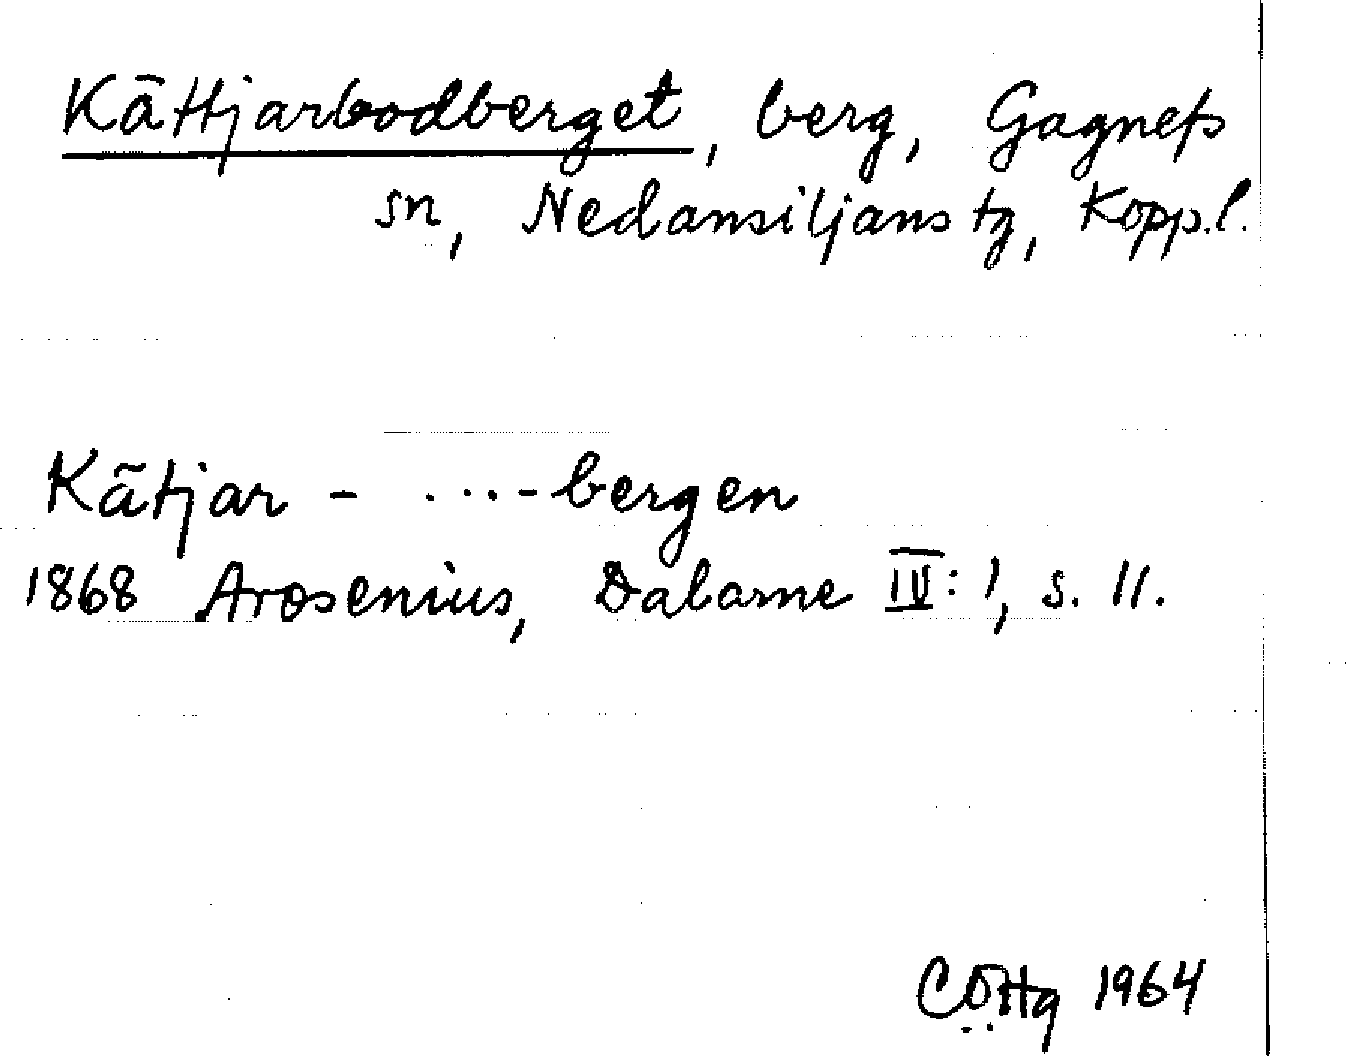 Kättjarbodberget, berg, Gagnefs
sn, Nedansiljans tg, Kopp.l.
Kätjar - ....-bergen
1868 Arosenius, Dalarne IV:1, s. 11.
1964